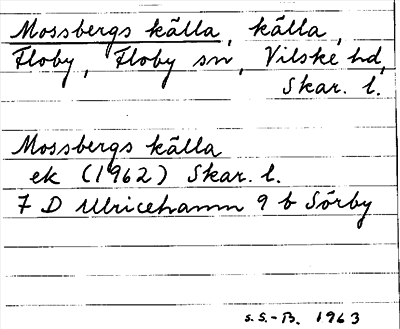 Mossbergs källa, källa,
Floby, Floby sn, Vilske hd,
Skar. l.
Mossbergs källa
ek (1962) Skar. l.
7 D Ulricehamn 9 b Sörby
S.S.-B. 1963